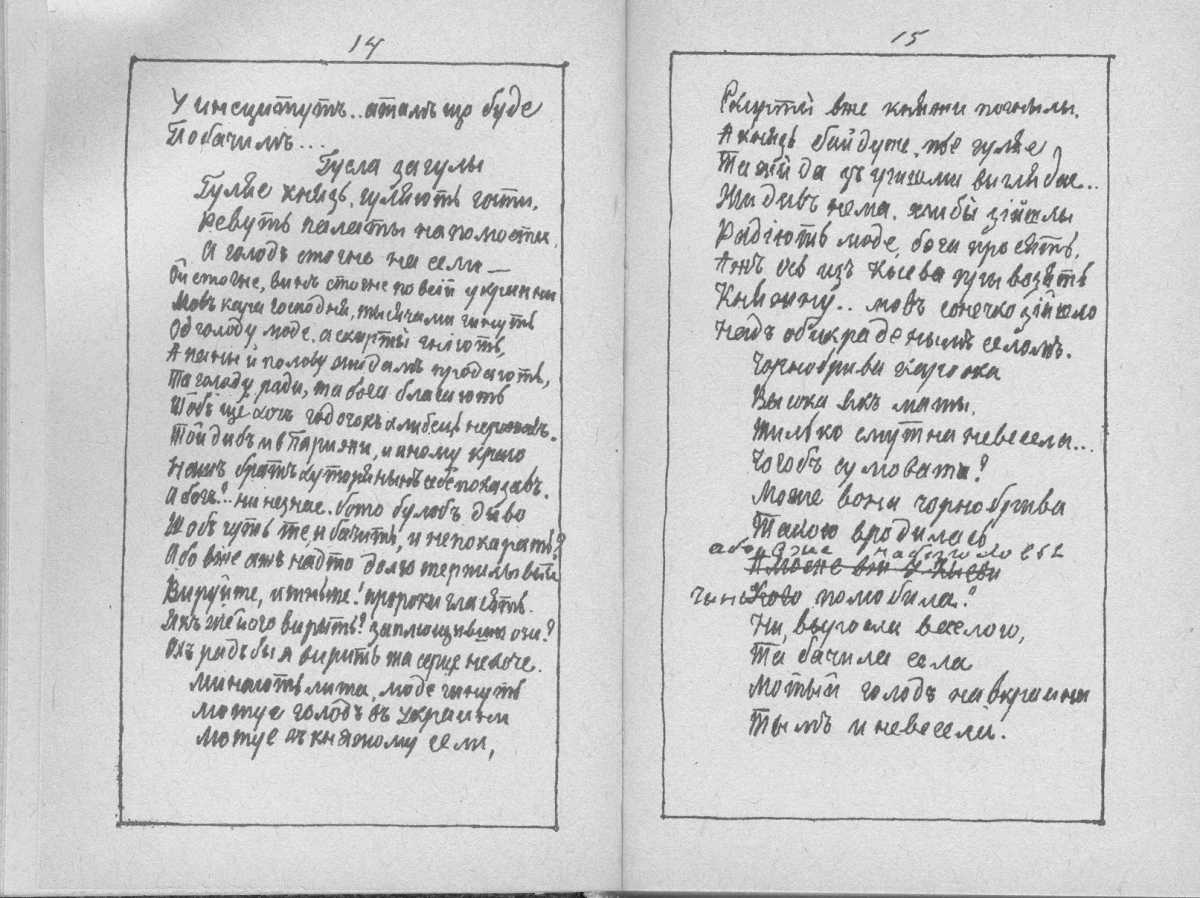 14
У инсцитутъ.. атамъ що буде
Побачимъ...
Гусла загулы
Гуляе князь, гуляють гости,
Ревуть палаты на помости,
А голодъ стогне на сели —
Ой стогне, винъ стогне по всій украини
Мовъ кара господня, тысячами гинуть
Одъ голоду люде. а скирты гніють,
А паны й полову жидамъ продають,
Та голоду ради, та бога благають
Щобъ іще хочь годочокъ хлибець нерожавъ.
Тойди бъ и в Парижи, и иному краю
Нашъ братъ хуторянынъ себе показавъ.
А богъ?.. ни незнае. бото було бъ диво
Щобъ чуть те и бачить, и непокарать?
Або вже ажъ надто долготерпиливый
Вируйте, итыште! пророки гласять.
Якъ же його вирыть? заплющивши очи?
Охъ радъ бы я вирить та серце нехоче.
Минають лита, люде гинуть
Лютуе голодъ въ украини
Лютуе въ княжому сели,
15
Скирты вже княжи погнылы.
А князь байдуже, пье гуляе
Та жида зъ гришми виглядае..
Жидивъ нема. хлибы зійшлы
Радіють люде, бога просять.
Ажъ ось изъ Кыева везять
Княжну.. мовъ сонечко зійшло
Надъ обикраденымъ селомъ.
Чорнобрива кароока
Высока якъ маты,
Тилько смутна невесела...
Чогобъ сумовати?
Може вона чорнобрива
Такою вродилась
або може
А може вже у Кыеви
Кого полюбила?
Ни, выросла веселою,
Та бачила села
Лютый голодъ на вкраини
Тымъ и невесела.